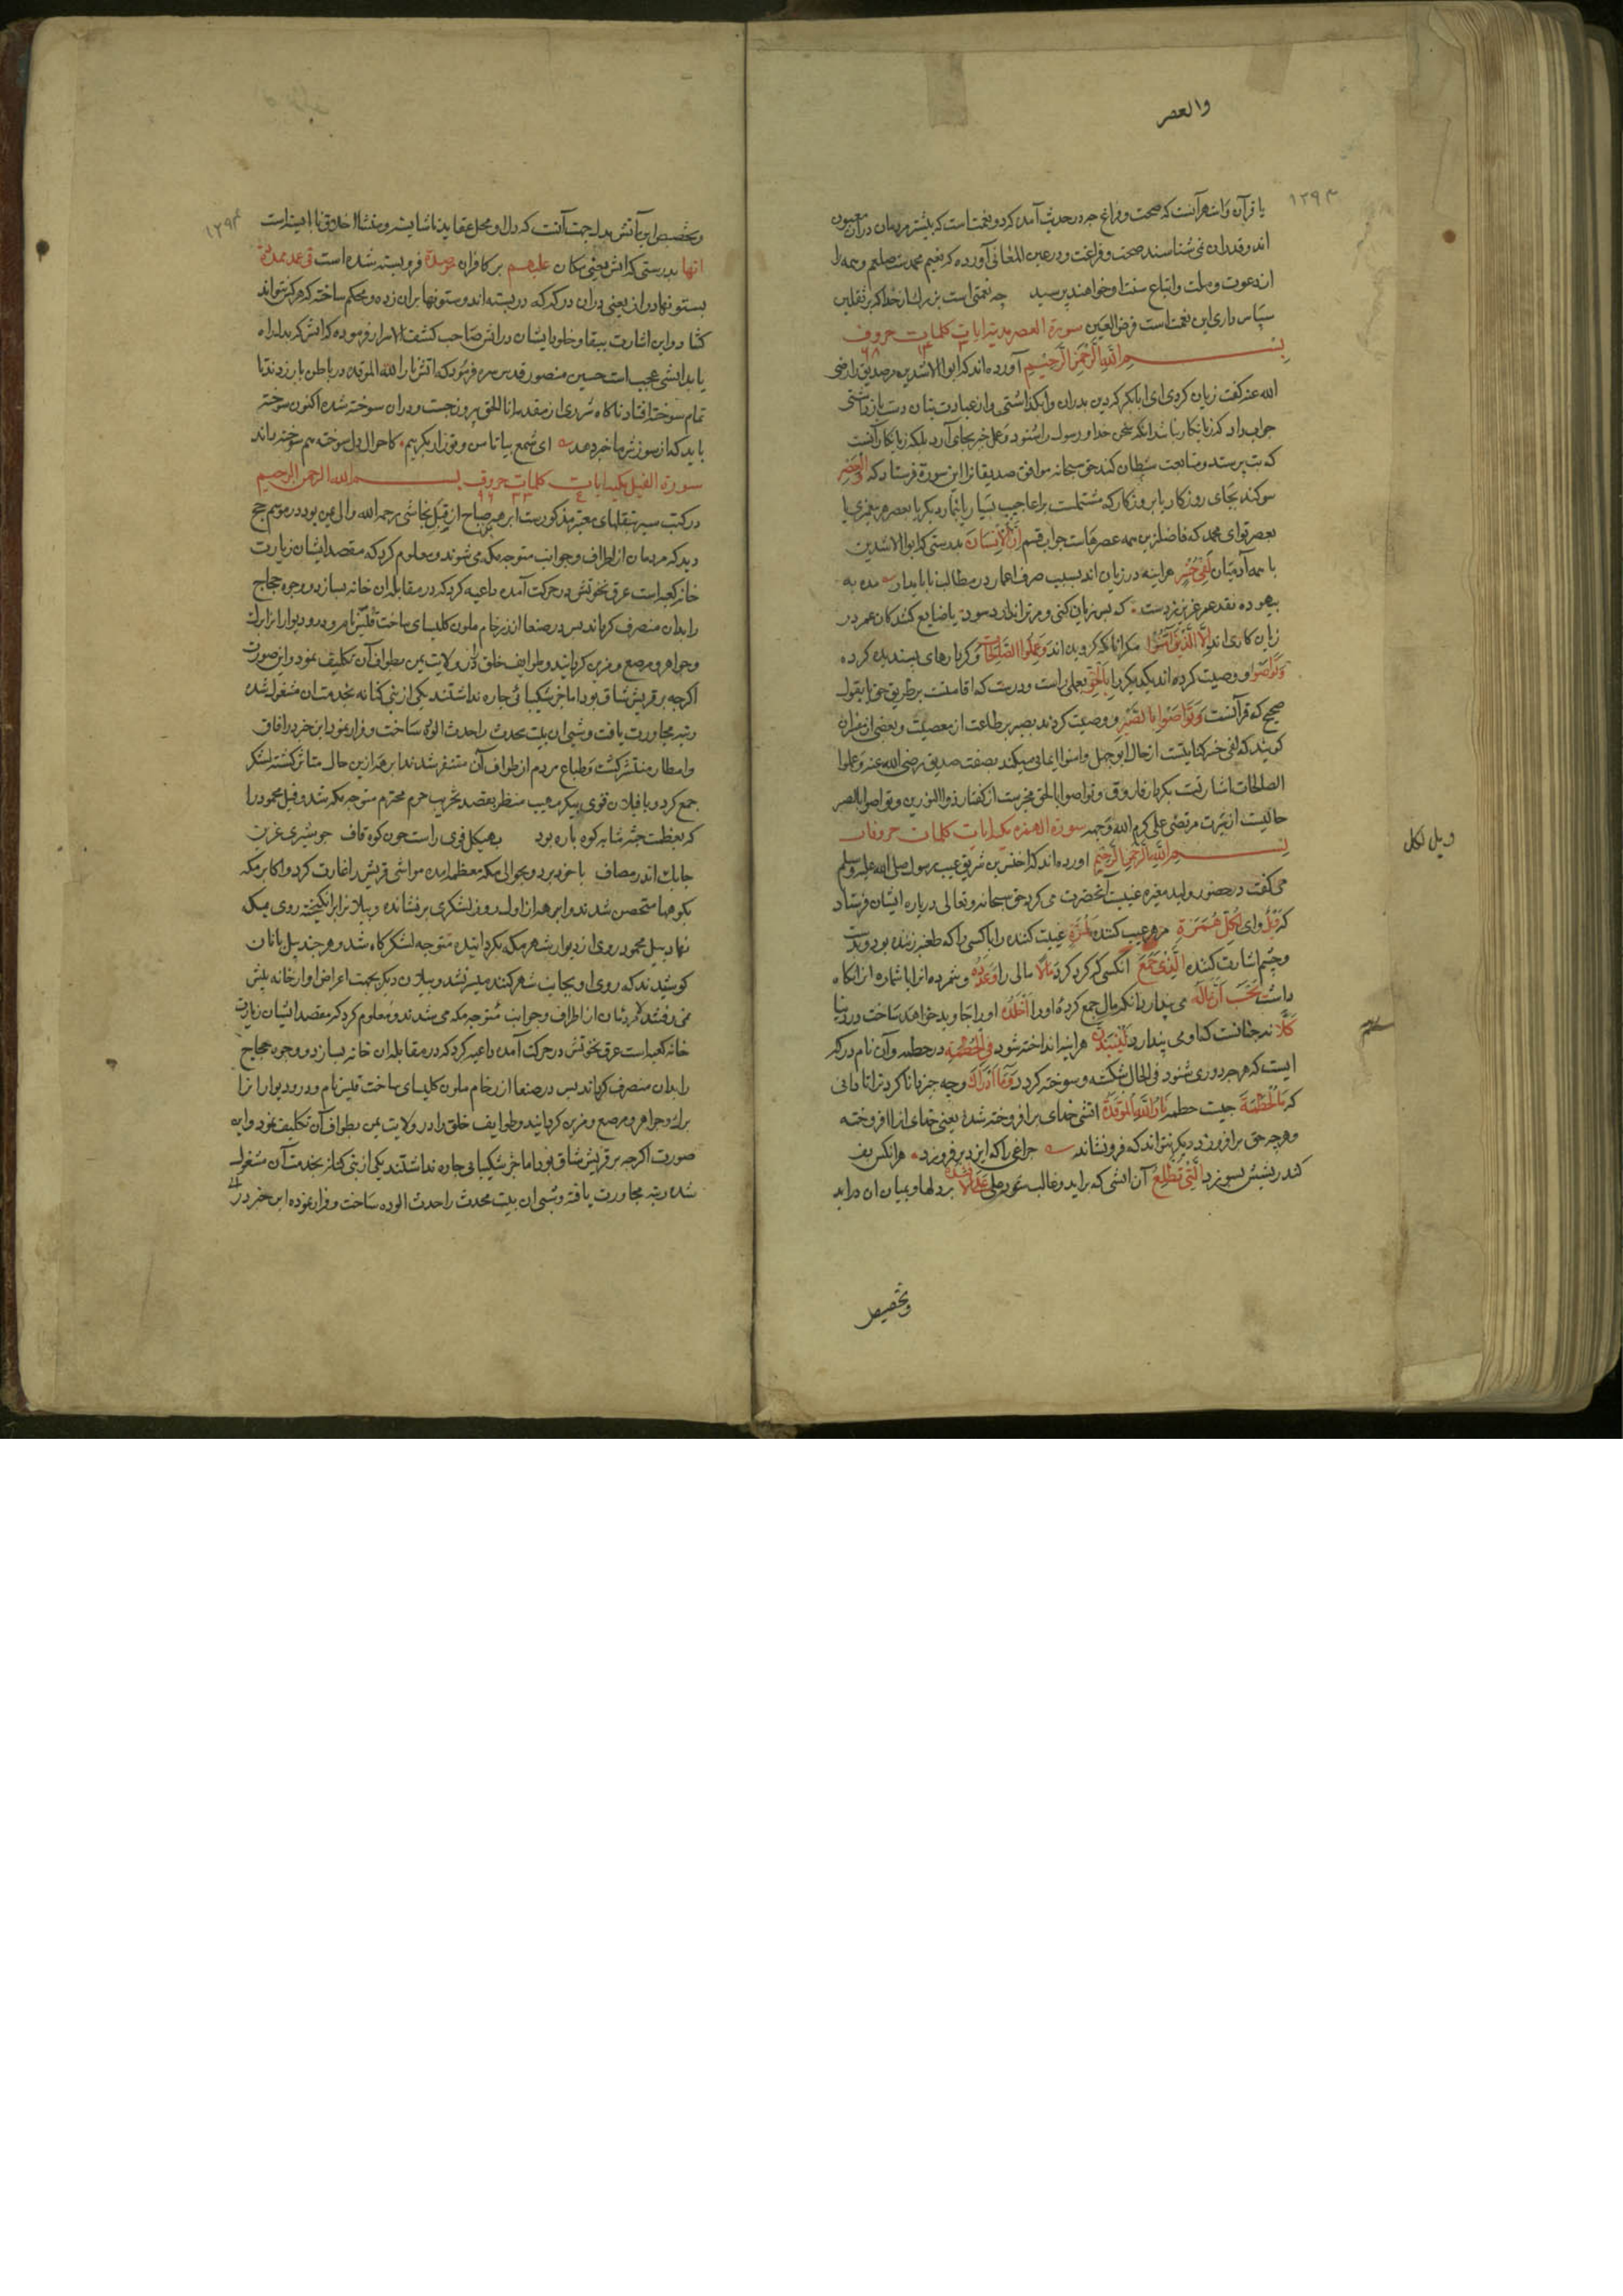 والعصر
۱۲۹۳
یا قرآن و اشهر آنست که صحت و فراغ چه در حدیث آمده که دو نعمت است که بیشتر مردمان در آن مغبون
اند و قدر آن نمی شناسند صحت و فراغت و در عین المعانی آورده که نعیم محمدست صلعم و همه را
از دعوت و ملت و اتباع سنت او خواهند پرسید چه نعمتی است بزرك از خدا که بر ثقلین
سپاس داری این نعمت است فرض العین سورة العصر مدنیه ایات کلمات حروف
بسم الله الرحمن الرحیم آورده اند که ابوالاشدین مر صدیق را رضی
الله عنه گفت زیان کردی ای ابابکر که دین پدران را بگذاشتی و از عبادت بتان دست بازداشتی
جواب داد که زیانکار نباشد انکه سخن خدا و رسول را شنود و عمل خیر بجای آرد بلکه زیانکار آنست
که بت پرستد و متابعت شیطان کند حق سبحانه موافق صدیق این سورة فرستاد که والعصر
سوکند بخدای روزکار یا بروزکار که مشتملست بر اعاجیب بسیار یا بنماز دیکر یا بعصر هر پیغمبری یا
بعصر تو ای محمد که فاضلترین همه عصرهاست جواب قسم ان الانسان بدرستی که ابوالاشدین
یا همه آدمیان لفی خسر هراینه در زیان اند بسبب صرف اعمار در مطالب ناپایدار مده به
بیهوده نقد عمر عزیز زدست که بس زیان کنی و مر ترا ندارد سود یا ضایع کنندکان عمر در
زیان کاری اند الا الذین آمنوا مکر انانکه کرویده اند وعملوا الصالحات و کردارهای پسندیده کرده
وتواصوا و وصیت کرده اند یکدیکر را بالحق بعملی راست و درست که اقامتست بر طریق حق یا بقول
صحیح که قرآنست وتواصوا بالصبر و وصیت کردند بصبر بر طاعت از معصیت و بعضی از مفسران
کویند که لفی خسر کنایتست از حال ابوجهل و امنوا ایمانی میکند بصفت صدیق رضی الله عنه وعملوا
الصالحات اشارتست بکردار فاروق وتواصوا بالحق مخبرست از گفتار ذوالنورین وتواصوا بالصبر
حالیست از سیرت مرتضی علی کرم الله وجهه سورة الهمزه مکیه ایات کلمات حروفات
بسم الله الرحمن الرحیم اورده اند که اخنس بن شریق عیب رسول صلی الله علیه وسلم
می گفت در حضور و ولید مغیره غیبت آنحضرت می کرد حق سبحانه و تعالی درباره ایشان فرستاد
که ویل وای لکل همزة مر هر عیب کننده لمزة غیبت کننده را یا کسی را که طعنه زننده بود و بدست
و چشم اشارت کننده الذی جمع انکسی که کرد کرد مالا مالی را وعدده و بشمرده انرا یا شماره انرا نکاه
داشت یحسب ان ماله می پندارد انکه مال جمع کرده او را اخلده او را جاوید خواهد ساخت در دنیا
کلا نه چنانست که او می پندارد لینبذن هراینه انداخته شود فی الحطمة در حطمه و آن نام درکه
ایست که هرچه در وی شود فی الحال شکسته و سوخته کردد وما ادراك و چه چیز دانا کرد ترا تا دانی
که ما الحطمة چیست حطمه نار الله الموقدة اتش خدای برافروخته شده یعنی خدای انرا افروخته
و هر چه حق برافروزد دیکر نتواند که فرو نشاند چراغی را که ایزد بر فروزد هر انکس پف
کند ریشش بسوزد التی تطلع آن اتشی که براید و غالب شود علی الافئدة بر دلها و بمیان ان دراید
وتخصیص
ویل لکل
۱۲۹۴
و تخصیص این آتش بدل جهت آنست که دل او محل عقاید ناشایسته و منشا اخلاق نابایسته است
انها بدرستی که اتش یعنی مکان علیهم بر کافران موصدة فرو بسته شده است فی عمد ممددة
بستونها دراز یعنی در ان درکه که در بسته اند و ستونها بران زده و محکم ساخته که هرکز نتواند
کشاد و این اشارت ببقا و خلود ایشان در اتش صاحب کشف الاسرار فرموده که اتش که بدل راه
یابد اتشی عجب است حسین منصور قدس سره فرموده که اتش نار الله الموقده در باطن ما زدند تا
تمام سوخته افتاد ناکاه شرری از مقدحه انا الحق بیرون جست و در ان سوخته شده اکنون سوخته
باید که از سوزش ما خبر دهد ای شمع بیا تا من و تو زار بکریم کاحوال دل سوخته هم سوخته داند
سورة الفیل مکیه ایات کلمات حروف بسم الله الرحمن الرحیم
در کتب سیر بنقلهای معتبر مذکورست ابرهه بن صباح از قبل نجاشی رحمه الله والی یمن بود در موسم حج
دید که مردمان از اطراف و جوانب متوجه مکه می شوند و معلوم کرد که مقصد ایشان زیارت
خانه کعبه است عرق نخوتش در حرکت آمده داعیه کرد که در مقابل ان خانه بسازد و وجوه حجاج
را بدان منصرف کرداند پس در صنعا از رخام ملون کلیسای ساخت قلیس نام و در و دیوار انرا بزر
و جواهر و مرصع و مزین کردانید و طوایف خلق را در ولایت یمن بطواف آن تکلیف نمود و این صورت
اکرچه بر قریش شاق بود اما جز شکیبائی چاره نداشتند یکی از بنی کنانه بخدمت ان مشغول شده
رتبه مجاورت یافت و شبی ان بیت محدث را حدث الوده ساخت و فرار نمود این خبر در افاق
و اقطار منتشر کشت و طباع مردم از طواف آن متنفر شدند ابرهه ازین حال متاثر کشته لشکر
جمع کرد و با فیلان قوی پیکر مهیب منظر بقصد تخریب حرم محترم متوجه مکه شد و فیل محمود را
که بعظمت جثه مشابه کوه پاره بود بهیکل قوی راست چون کوه قاف چو شیری غرین
چابك اندر مصاف با خود برد و بحوالی مکه معظمه امده مواشی قریش را غارت کرد و اکابر مکه
بکوهها متحصن شدند و ابرهه از اول روز لشکری برنشانده و پیلانرا برانکیخته روی بمکه
نهاد پیل محمود روی از دیوار شهر مکه بکردانیده متوجه لشکرکاه شد و هرچند پیل بانان
کوشیدند که روی او بجانب شهر کنند میسر نشد و پیلان دیکر بجهت اعراض او از خانه پیش
نمی رفتند مردمان از اطراف و جوانب متوجه مکه می شدند و معلوم کرد که مقصد ایشان زیارت
خانه کعبه است عرق نخوتش در حرکت آمده داعیه کرد که در مقابل ان خانه بسازد و وجوه حجاج
را بدان منصرف کرداند پس در صنعا از رخام ملون کلیسای ساخت قلیس نام و در و دیوار انرا
بزر و جواهر و مرصع و مزین کردانید و طوایف خلق را در ولایت یمن بطواف آن تکلیف نمود و این
صورت اکرچه بر قریش شاق بود اما جز شکیبائی چاره نداشتند یکی از بنی کنانه بخدمت آن مشغول
شده رتبه مجاورت یافته و شبی ان بیت محدث را حدث الوده ساخت و فرار نموده این خبر در